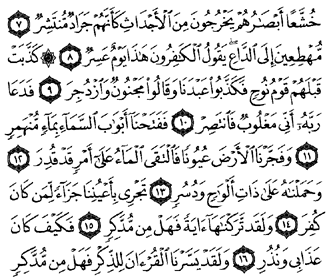 خُشَّعًا أَبْصَٰرُهُمْ يَخْرُجُونَ مِنَ ٱلْأَجْدَاثِ كَأَنَّهُمْ جَرَادٌ مُّنتَشِرٌ ٧
مُّهْطِعِينَ إِلَى ٱلدَّاعِ ۖ يَقُولُ ٱلْكَٰفِرُونَ هَٰذَا يَوْمٌ عَسِرٌ ٨ ۞ كَذَّبَتْ
قَبْلَهُمْ قَوْمُ نُوحٍ فَكَذَّبُوا۟ عَبْدَنَا وَقَالُوا۟ مَجْنُونٌ وَٱزْدُجِرَ ٩ فَدَعَا
رَبَّهُۥٓ أَنِّى مَغْلُوبٌ فَٱنتَصِرْ ١٠ فَفَتَحْنَآ أَبْوَٰبَ ٱلسَّمَآءِ بِمَآءٍ مُّنْهَمِرٍ
١١ وَفَجَّرْنَا ٱلْأَرْضَ عُيُونًا فَٱلْتَقَى ٱلْمَآءُ عَلَىٰٓ أَمْرٍ قَدْ قُدِرَ ١٢
وَحَمَلْنَٰهُ عَلَىٰ ذَاتِ أَلْوَٰحٍ وَدُسُرٍ ١٣ تَجْرِى بِأَعْيُنِنَا جَزَآءً لِّمَن كَانَ
كُفِرَ ١٤ وَلَقَد تَّرَكْنَٰهَآ ءَايَةً فَهَلْ مِن مُّدَّكِرٍ ١٥ فَكَيْفَ كَانَ
عَذَابِى وَنُذُرِ ١٦ وَلَقَدْ يَسَّرْنَا ٱلْقُرْءَانَ لِلذِّكْرِ فَهَلْ مِن مُّدَّكِرٍ